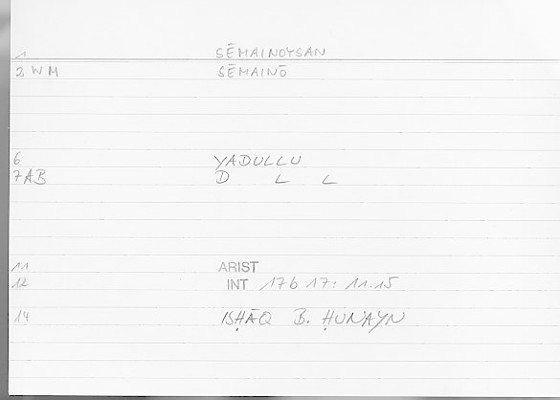 1 SĒMAINOYSAN
2 WM SĒMAINŌ
6 YADULLU
7AB D L L
11 ARIST
12 INT 17b 17: 11.15
14 ISḤĀQ B. ḤUNAYN